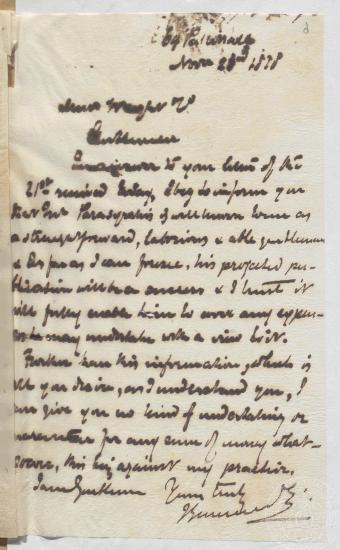 64 Pall Mall
Novr 23rd 1878
Gentlemen
In answer to your letter of the
21st received today, I beg to inform you
that is well known to me as
a straightforward, laborious & able gentleman
& as far as I can foresee, his projected pu-
blication will be a success & I trust it
will fully enable him to cover any expen-
ses he may undertake with a view to it.
Further than this information, which is
all you desire, as I understand you, I
can give you no kind of undertaking or
guarantee for any sum of money what-
soever, this being against my practice.
I am Gentlemen Yours truly